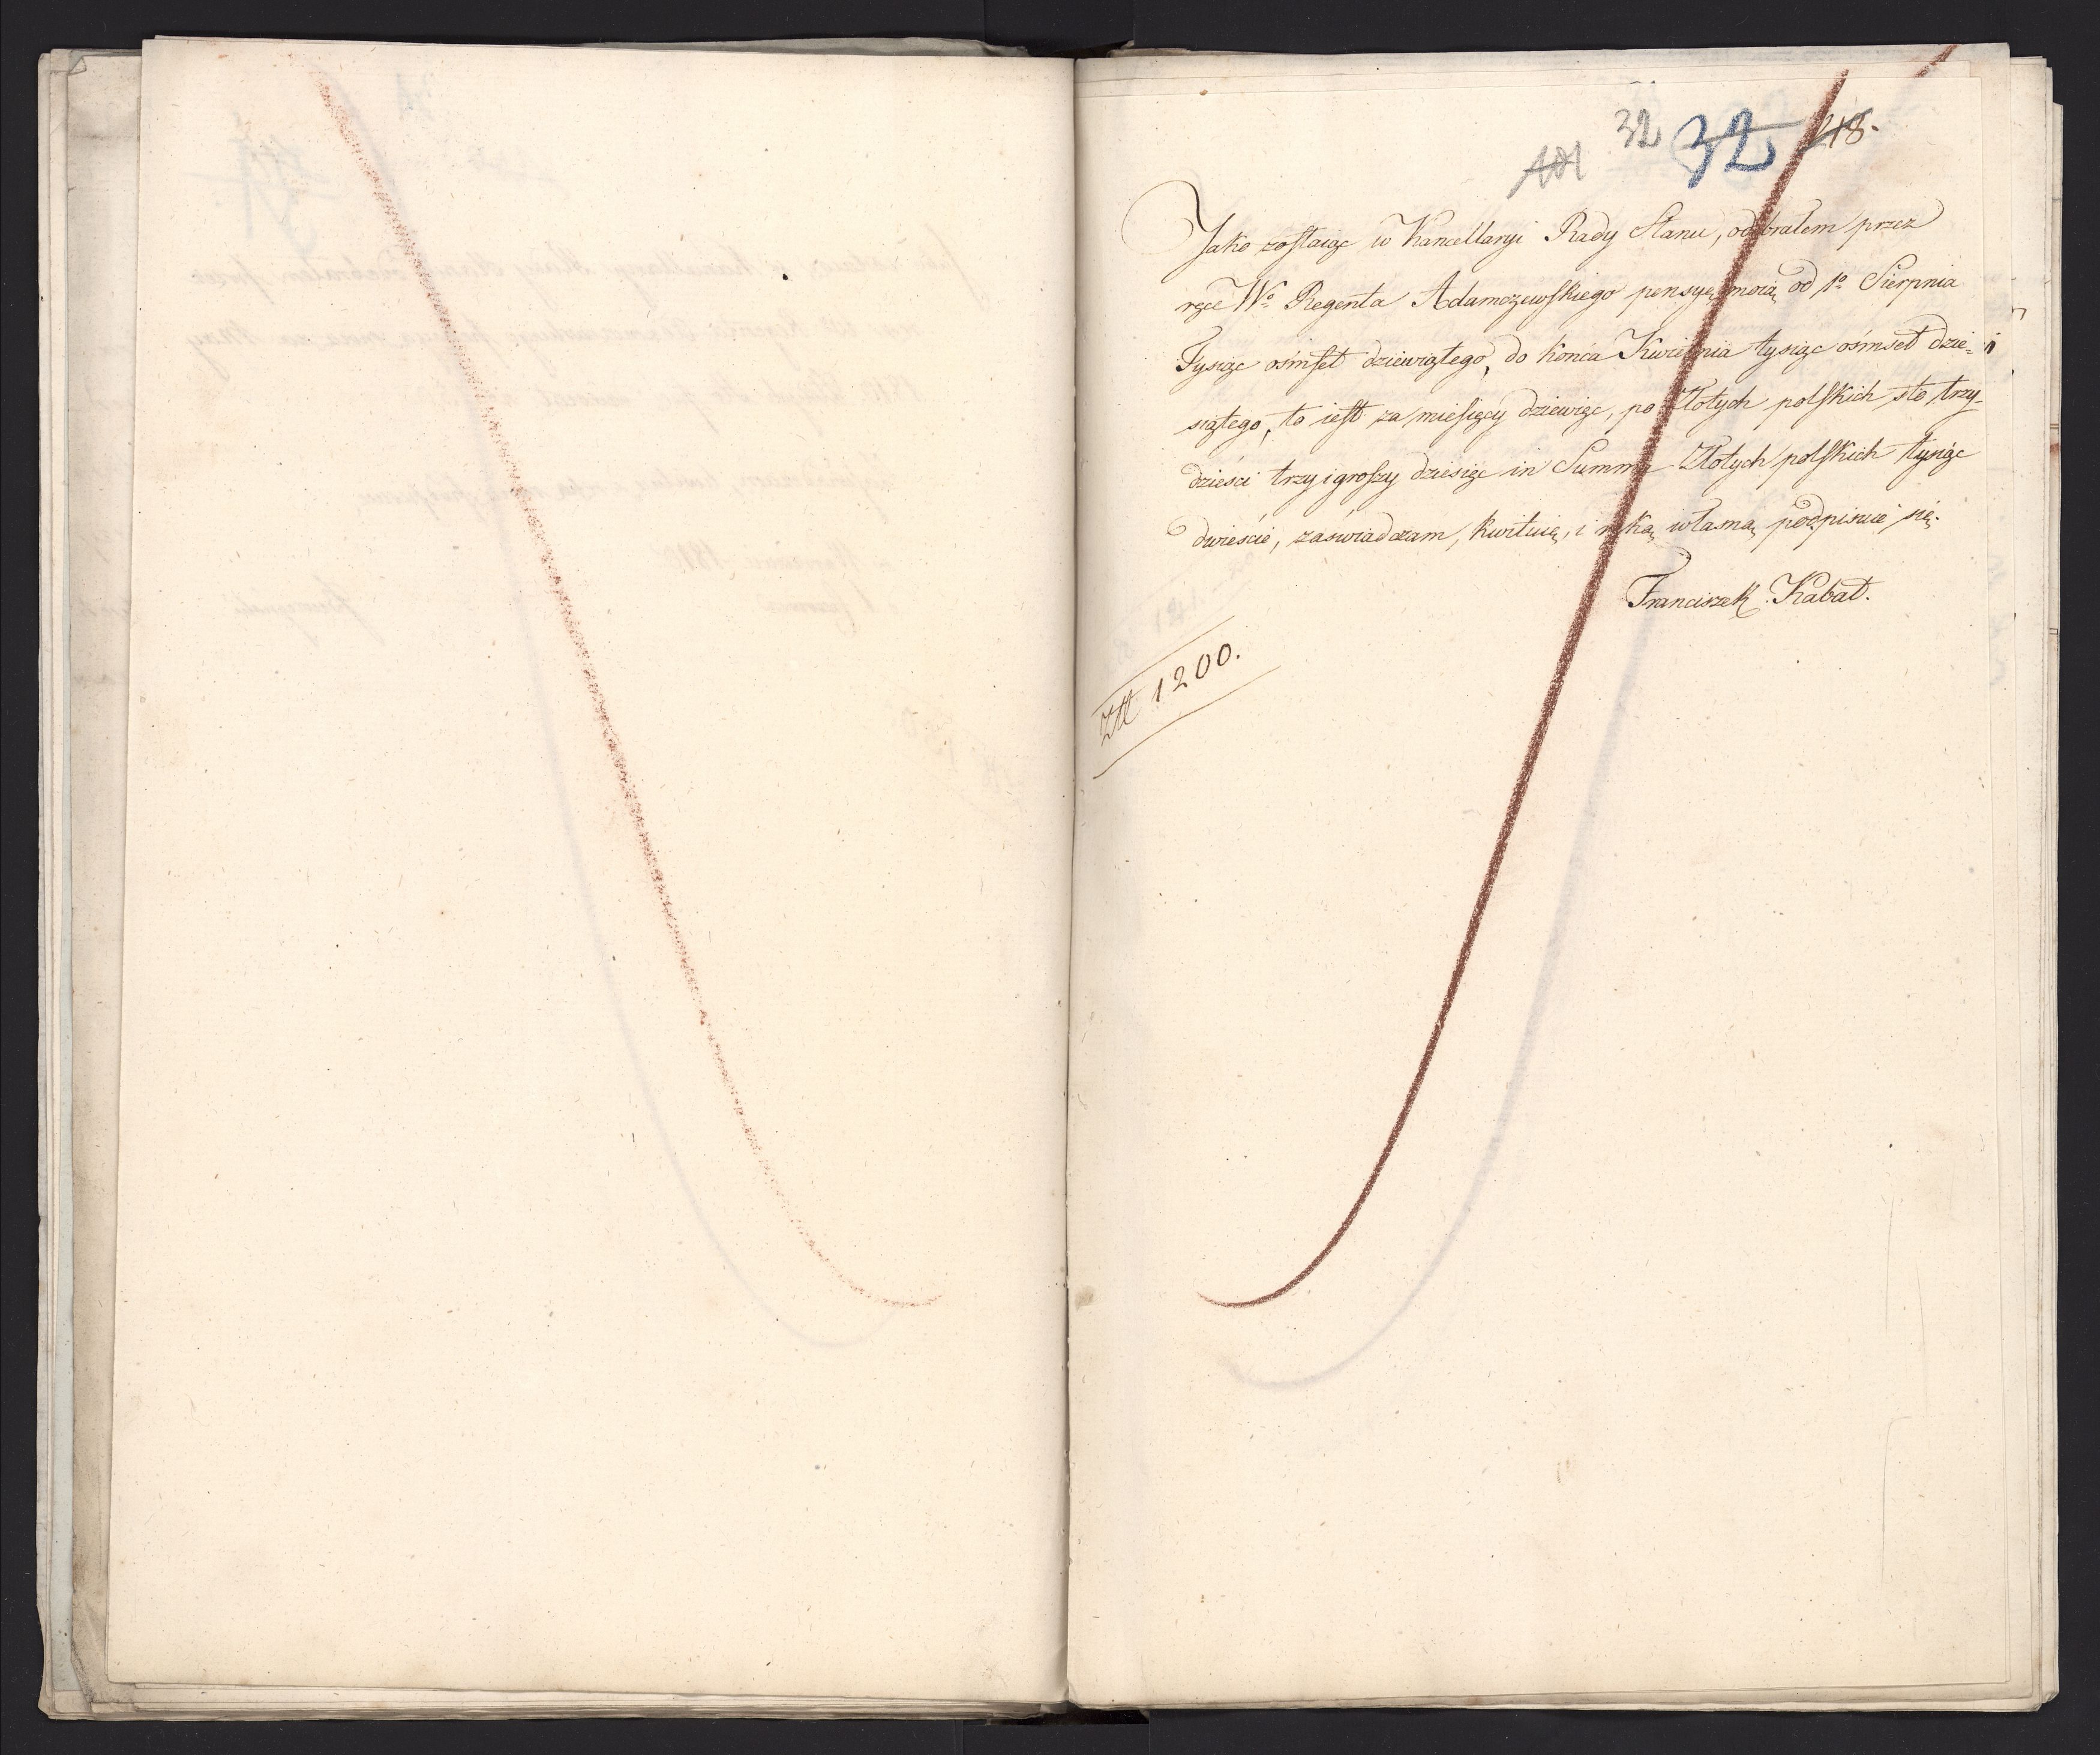 32 32 218.
101
Jako zostaiąc w Kancellaryi Rady Stanu, odebrałem przez
ręce Wo. Regenta Adamczewskiego pensyę moią od 1o. Sierpnia
Tysiąc ośmset dziewiątego, do końca Kwietnia tysiąc ośmset dzie-
siątego, to iest za miesięcy dziewięć, po Złotych polskich sto trzy-
dzieści trzy i groszy dziesięć in Summa Złotych polskich tysiąc
dwieście, zaświadczam, kwituię, i ręką własną podpisuię się.
Franciszek Kabat.
Złł 1200.